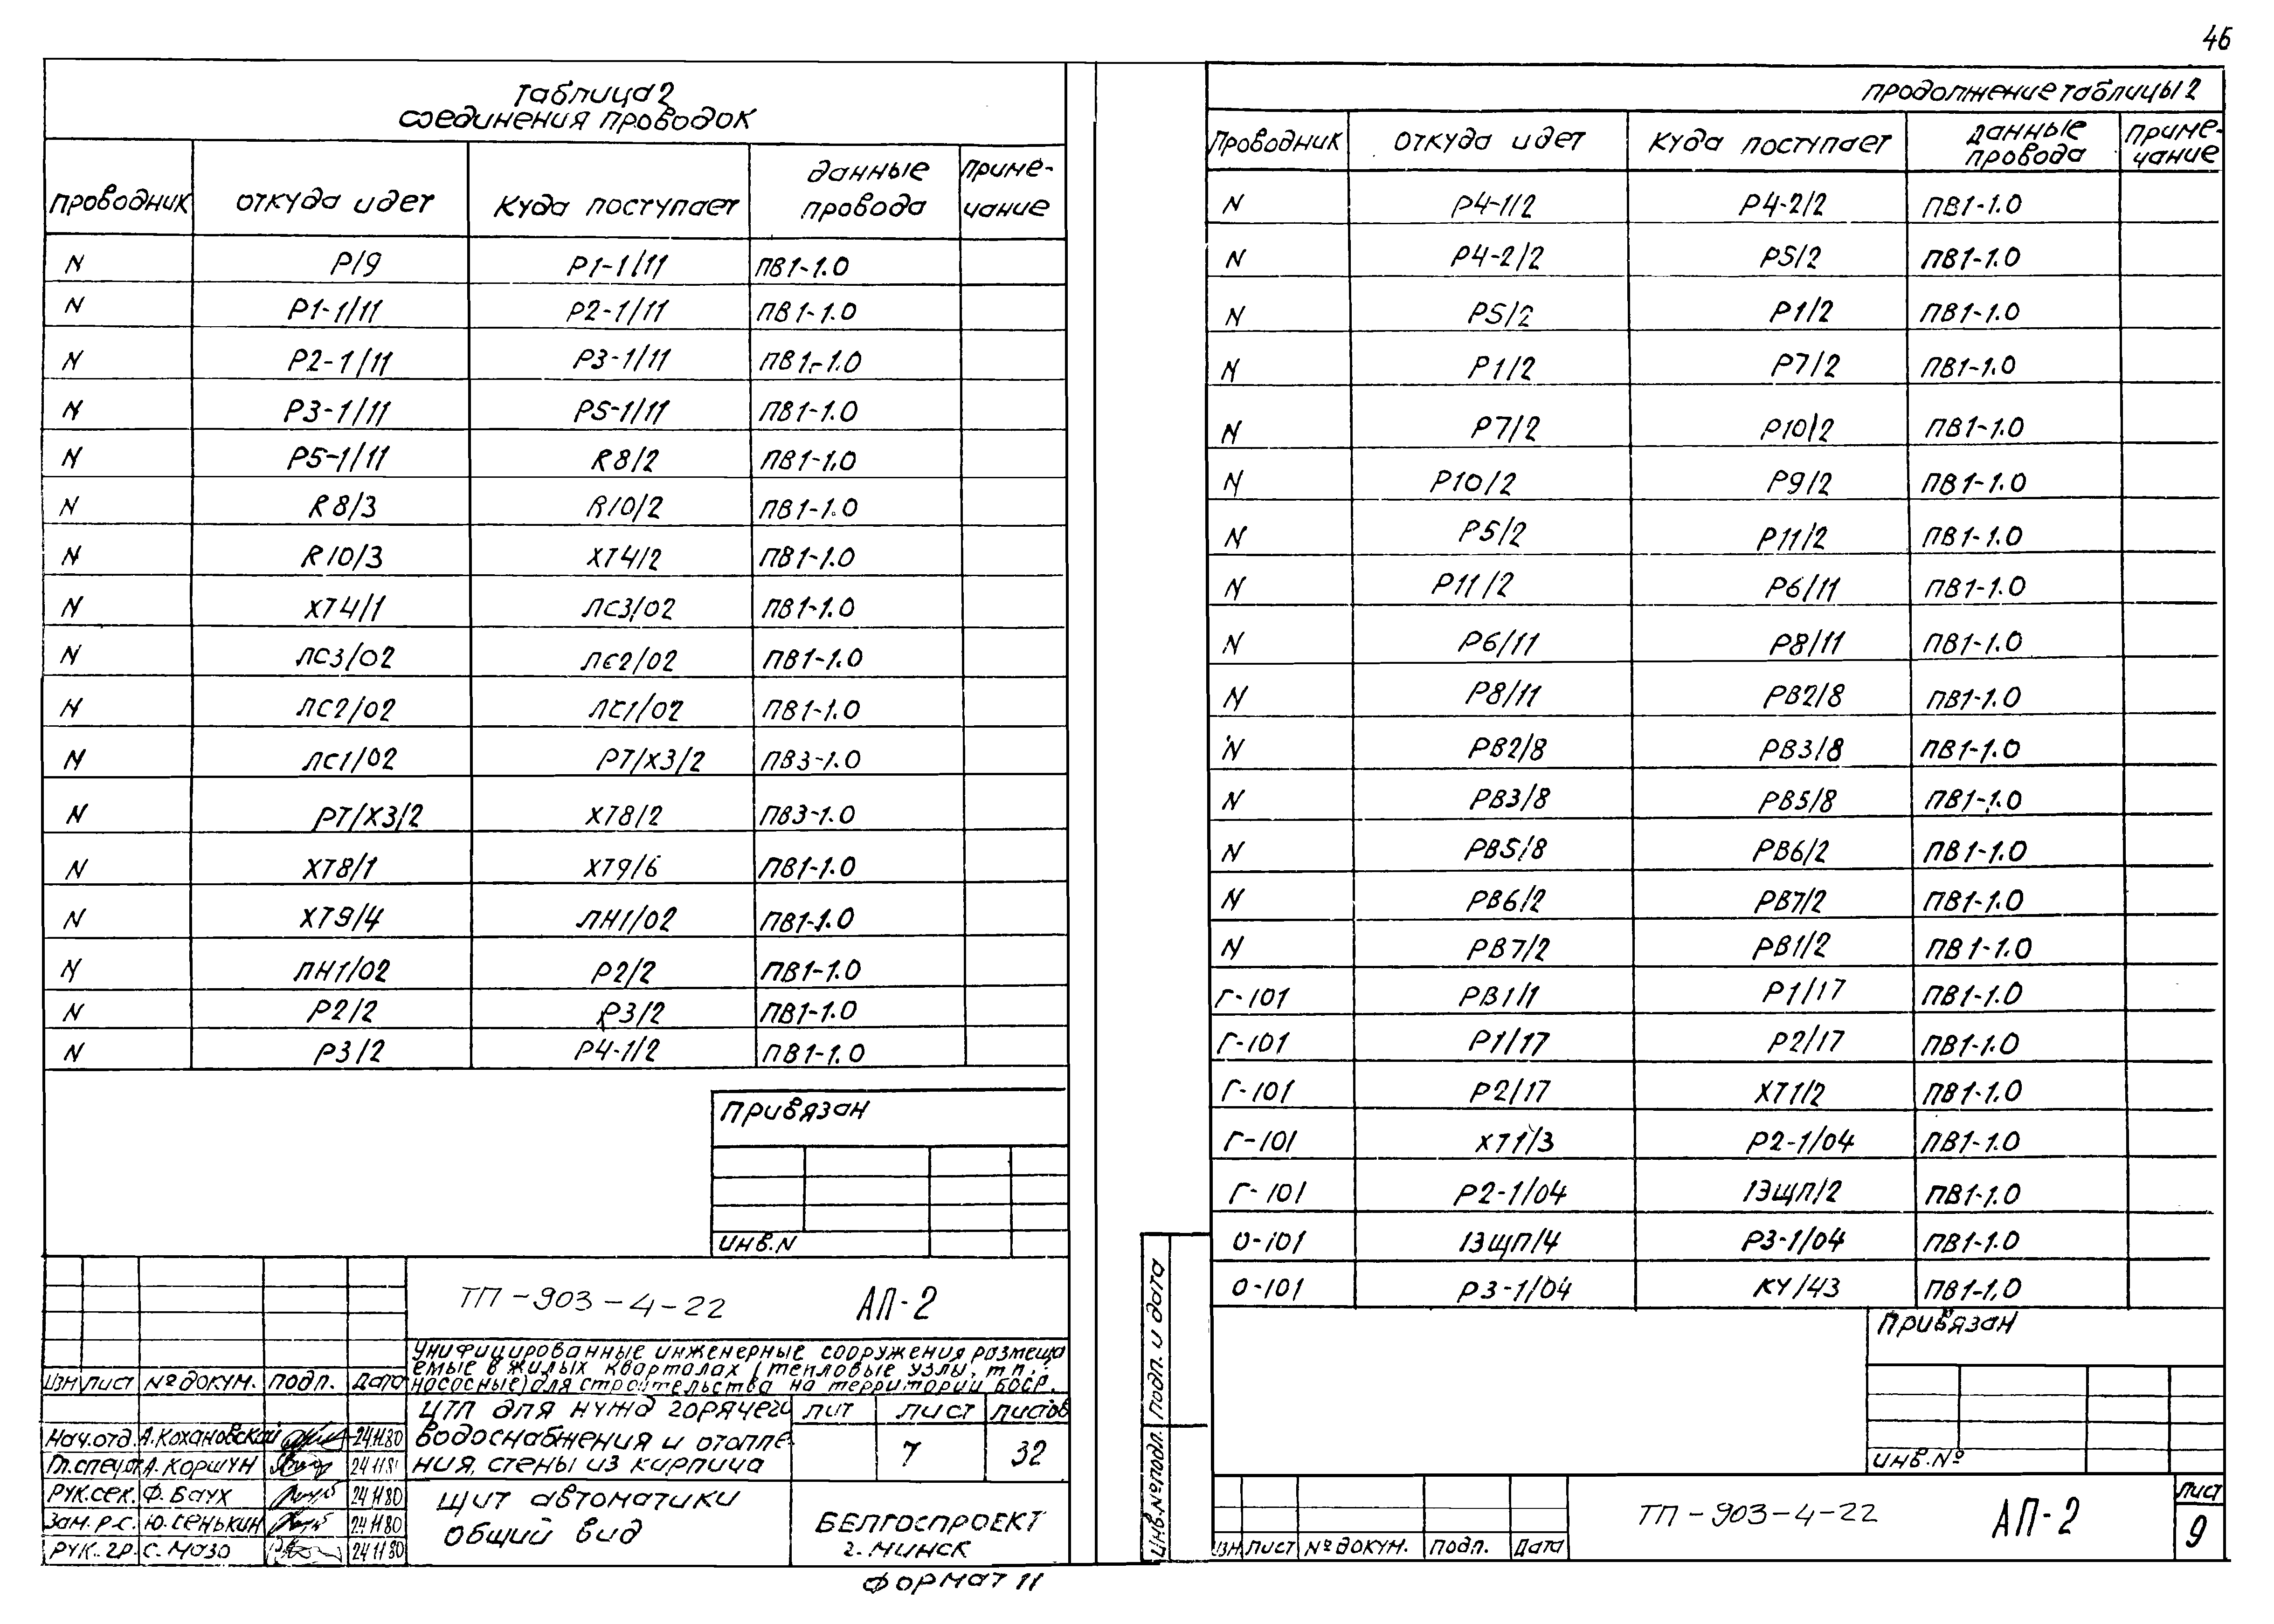 46
Таблица 2
соединения проводок
проводник откуда идет куда поступает данные провода примечание
N Р/9 Р1-1/11 ПВ1-1.0
N Р1-1/11 Р2-1/11 ПВ1-1.0
N Р2-1/11 Р3-1/11 ПВ1-1.0
N Р3-1/11 Р5-1/11 ПВ1-1.0
N Р5-1/11 R8/2 ПВ1-1.0
N R8/3 R10/2 ПВ1-1.0
N R10/3 ХТ4/2 ПВ1-1.0
N ХТ4/1 ЛС3/02 ПВ1-1.0
N ЛС3/02 ЛС2/02 ПВ1-1.0
N ЛС2/02 ЛС1/02 ПВ1-1.0
N ЛС1/02 РТ/Х3/2 ПВ3-1.0
N РТ/Х3/2 ХТ8/2 ПВ3-1.0
N ХТ8/1 ХТ9/6 ПВ1-1.0
N ХТ9/4 ЛН1/02 ПВ1-1.0
N ЛН1/02 Р2/2 ПВ1-1.0
N Р2/2 Р3/2 ПВ1-1.0
N Р3/2 Р4-1/2 ПВ1-1.0
Привязан
ИНВ.N
ТП-903-4-22 АП-2
Унифицированные инженерные сооружения размеща
емые в жилых кварталах (тепловые узлы, тп,
насосные) для строительства на территории БССР.
Изм Лист №докум. Подп. Дата
ЦТП для нужд горячего
водоснабжения и отопле
ния, стены из кирпича
Лит Лист Листов
7 32
Нач.отд. А.Кохановский 24.11.80
Гл.спец.от А.Коршун 24 11 81
Рук.сек. Ф.Баух 24 11 80
Зам.р.с. Ю.Сенькин 24 11 80
Рук.гр. С.Мазо 24 11 80
Щит автоматики
Общий вид
БЕЛГОСПРОЕКТ
г. Минск
Формат 11
продолжение таблицы 2
Проводник откуда идет куда поступает данные провода примечание
N Р4-1/2 Р4-2/2 ПВ1-1.0
N Р4-2/2 Р5/2 ПВ1-1.0
N Р5/2 Р1/2 ПВ1-1.0
N Р1/2 Р7/2 ПВ1-1.0
N Р7/2 Р10/2 ПВ1-1.0
N Р10/2 Р9/2 ПВ1-1.0
N Р5/2 Р11/2 ПВ1-1.0
N Р11/2 Р6/11 ПВ1-1.0
N Р6/11 Р8/11 ПВ1-1.0
N Р8/11 РВ2/8 ПВ1-1.0
N РВ2/8 РВ3/8 ПВ1-1.0
N РВ3/8 РВ5/8 ПВ1-1.0
N РВ5/8 РВ6/2 ПВ1-1.0
N РВ6/2 РВ7/2 ПВ1-1.0
N РВ7/2 РВ1/2 ПВ1-1.0
Г-101 РВ1/1 Р1/17 ПВ1-1.0
Г-101 Р1/17 Р2/17 ПВ1-1.0
Г-101 Р2/17 ХТ1/2 ПВ1-1.0
Г-101 ХТ1/3 Р2-1/04 ПВ1-1.0
Г-101 Р2-1/04 1ЭЩП/2 ПВ1-1.0
О-101 1ЭЩП/4 Р3-1/04 ПВ1-1.0
О-101 Р3-1/04 КУ/43 ПВ1-1.0
Привязан
ИНВ.№
Подп. и дата
Инв.№подл.
Изм Лист №докум. Подп. Дата
ТП-903-4-22 АП-2
Лист
9